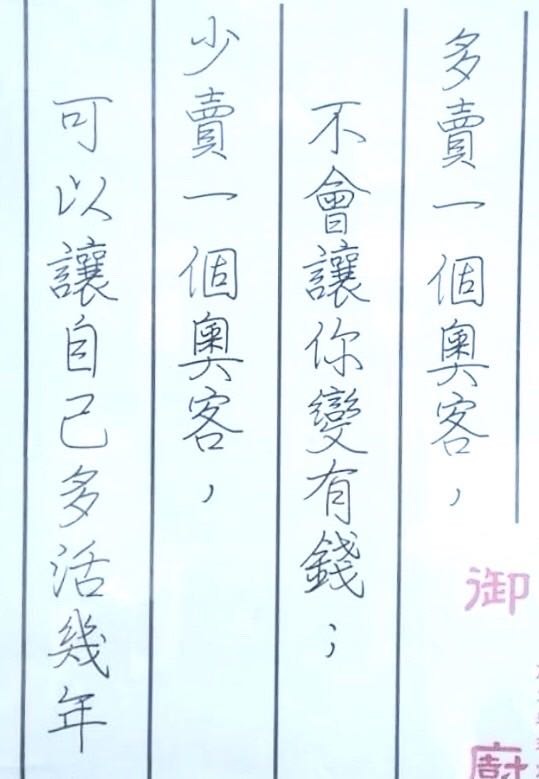 多賣一個奧客，
不會讓你變有錢；
少賣一個奧客，
可以讓自己多活幾年
御